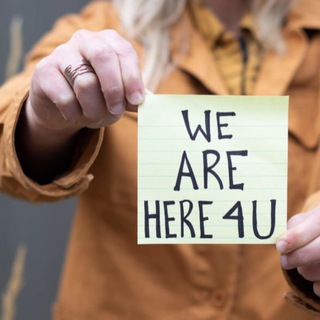 WE
ARE
HERE 4 U